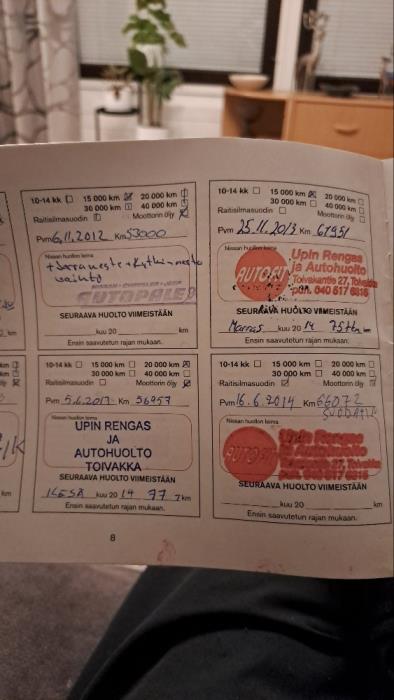 10-14 kk 15 000 km 20 000 km
30 000 km 40 000 km
Raitisilmasuodin Moottorin öljy
Pvm 6.11.2012 Km 53000
Nissan huollon leima
AUTOPALE
SEURAAVA HUOLTO VIIMEISTÄÄN
kuu 20 km
Ensin saavutetun rajan mukaan.
10-14 kk 15 000 km 20 000 km
30 000 km 40 000 km
Raitisilmasuodin Moottorin öljy
Pvm 25.11.2013 Km
Nissan huollon leima
AUTOFIT
Upin Rengas
ja Autohuolto
Toivakantie 27, Toivakka
puh. 040 517 6816
SEURAAVA HUOLTO VIIMEISTÄÄN
Marras kuu 20 14 km
Ensin saavutetun rajan mukaan.
10-14 kk 15 000 km 20 000 km
30 000 km 40 000 km
Raitisilmasuodin Moottorin öljy
Pvm 5.6.2013 Km 56957
Nissan huollon leima
UPIN RENGAS
JA
AUTOHUOLTO
TOIVAKKA
SEURAAVA HUOLTO VIIMEISTÄÄN
KESÄ kuu 20 14 77 km
Ensin saavutetun rajan mukaan.
10-14 kk 15 000 km 20 000 km
30 000 km 40 000 km
Raitisilmasuodin Moottorin öljy
Pvm 16.6.2014 Km 66072
Nissan huollon leima
AUTOFIT
Upin Rengas
ja Autohuolto
SEURAAVA HUOLTO VIIMEISTÄÄN
kuu 20 km
Ensin saavutetun rajan mukaan.
8